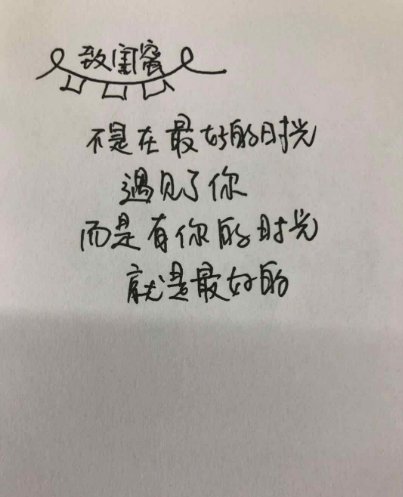 致闺蜜
不是在最好的时光
遇见了你
而是有你的时光
就是最好的